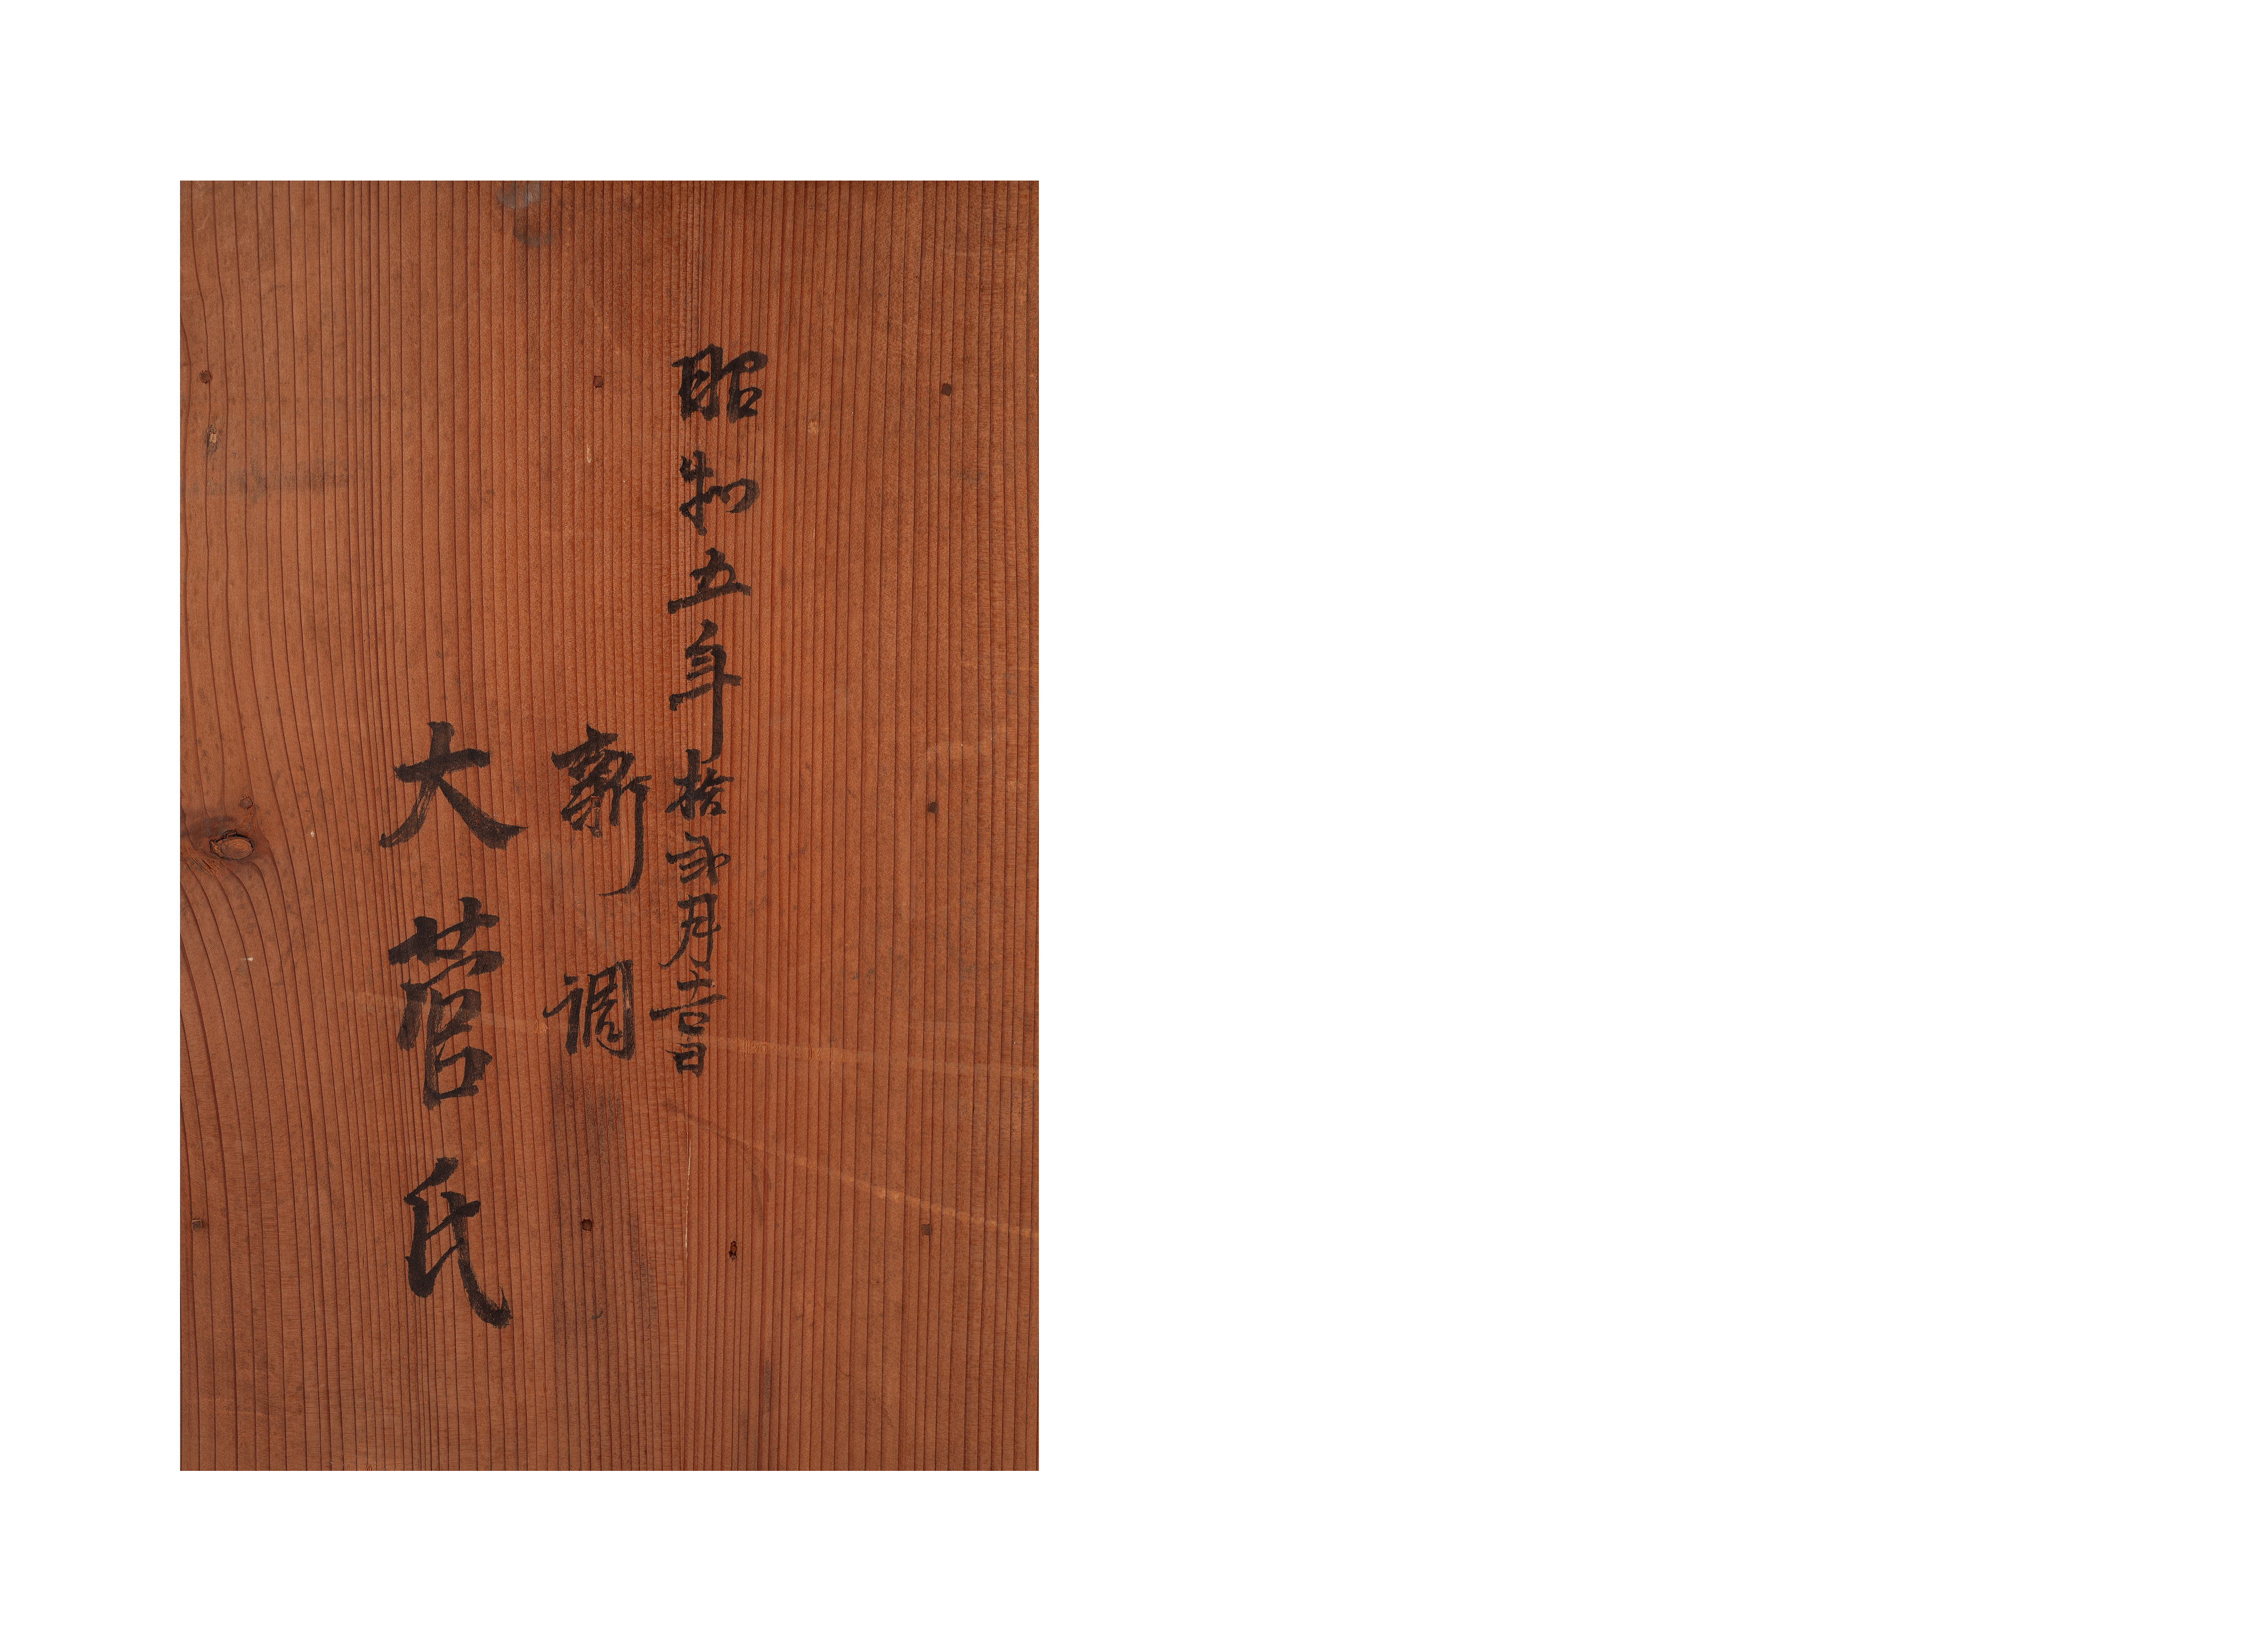 昭和五年拾弐月吉日
新調
大菅氏